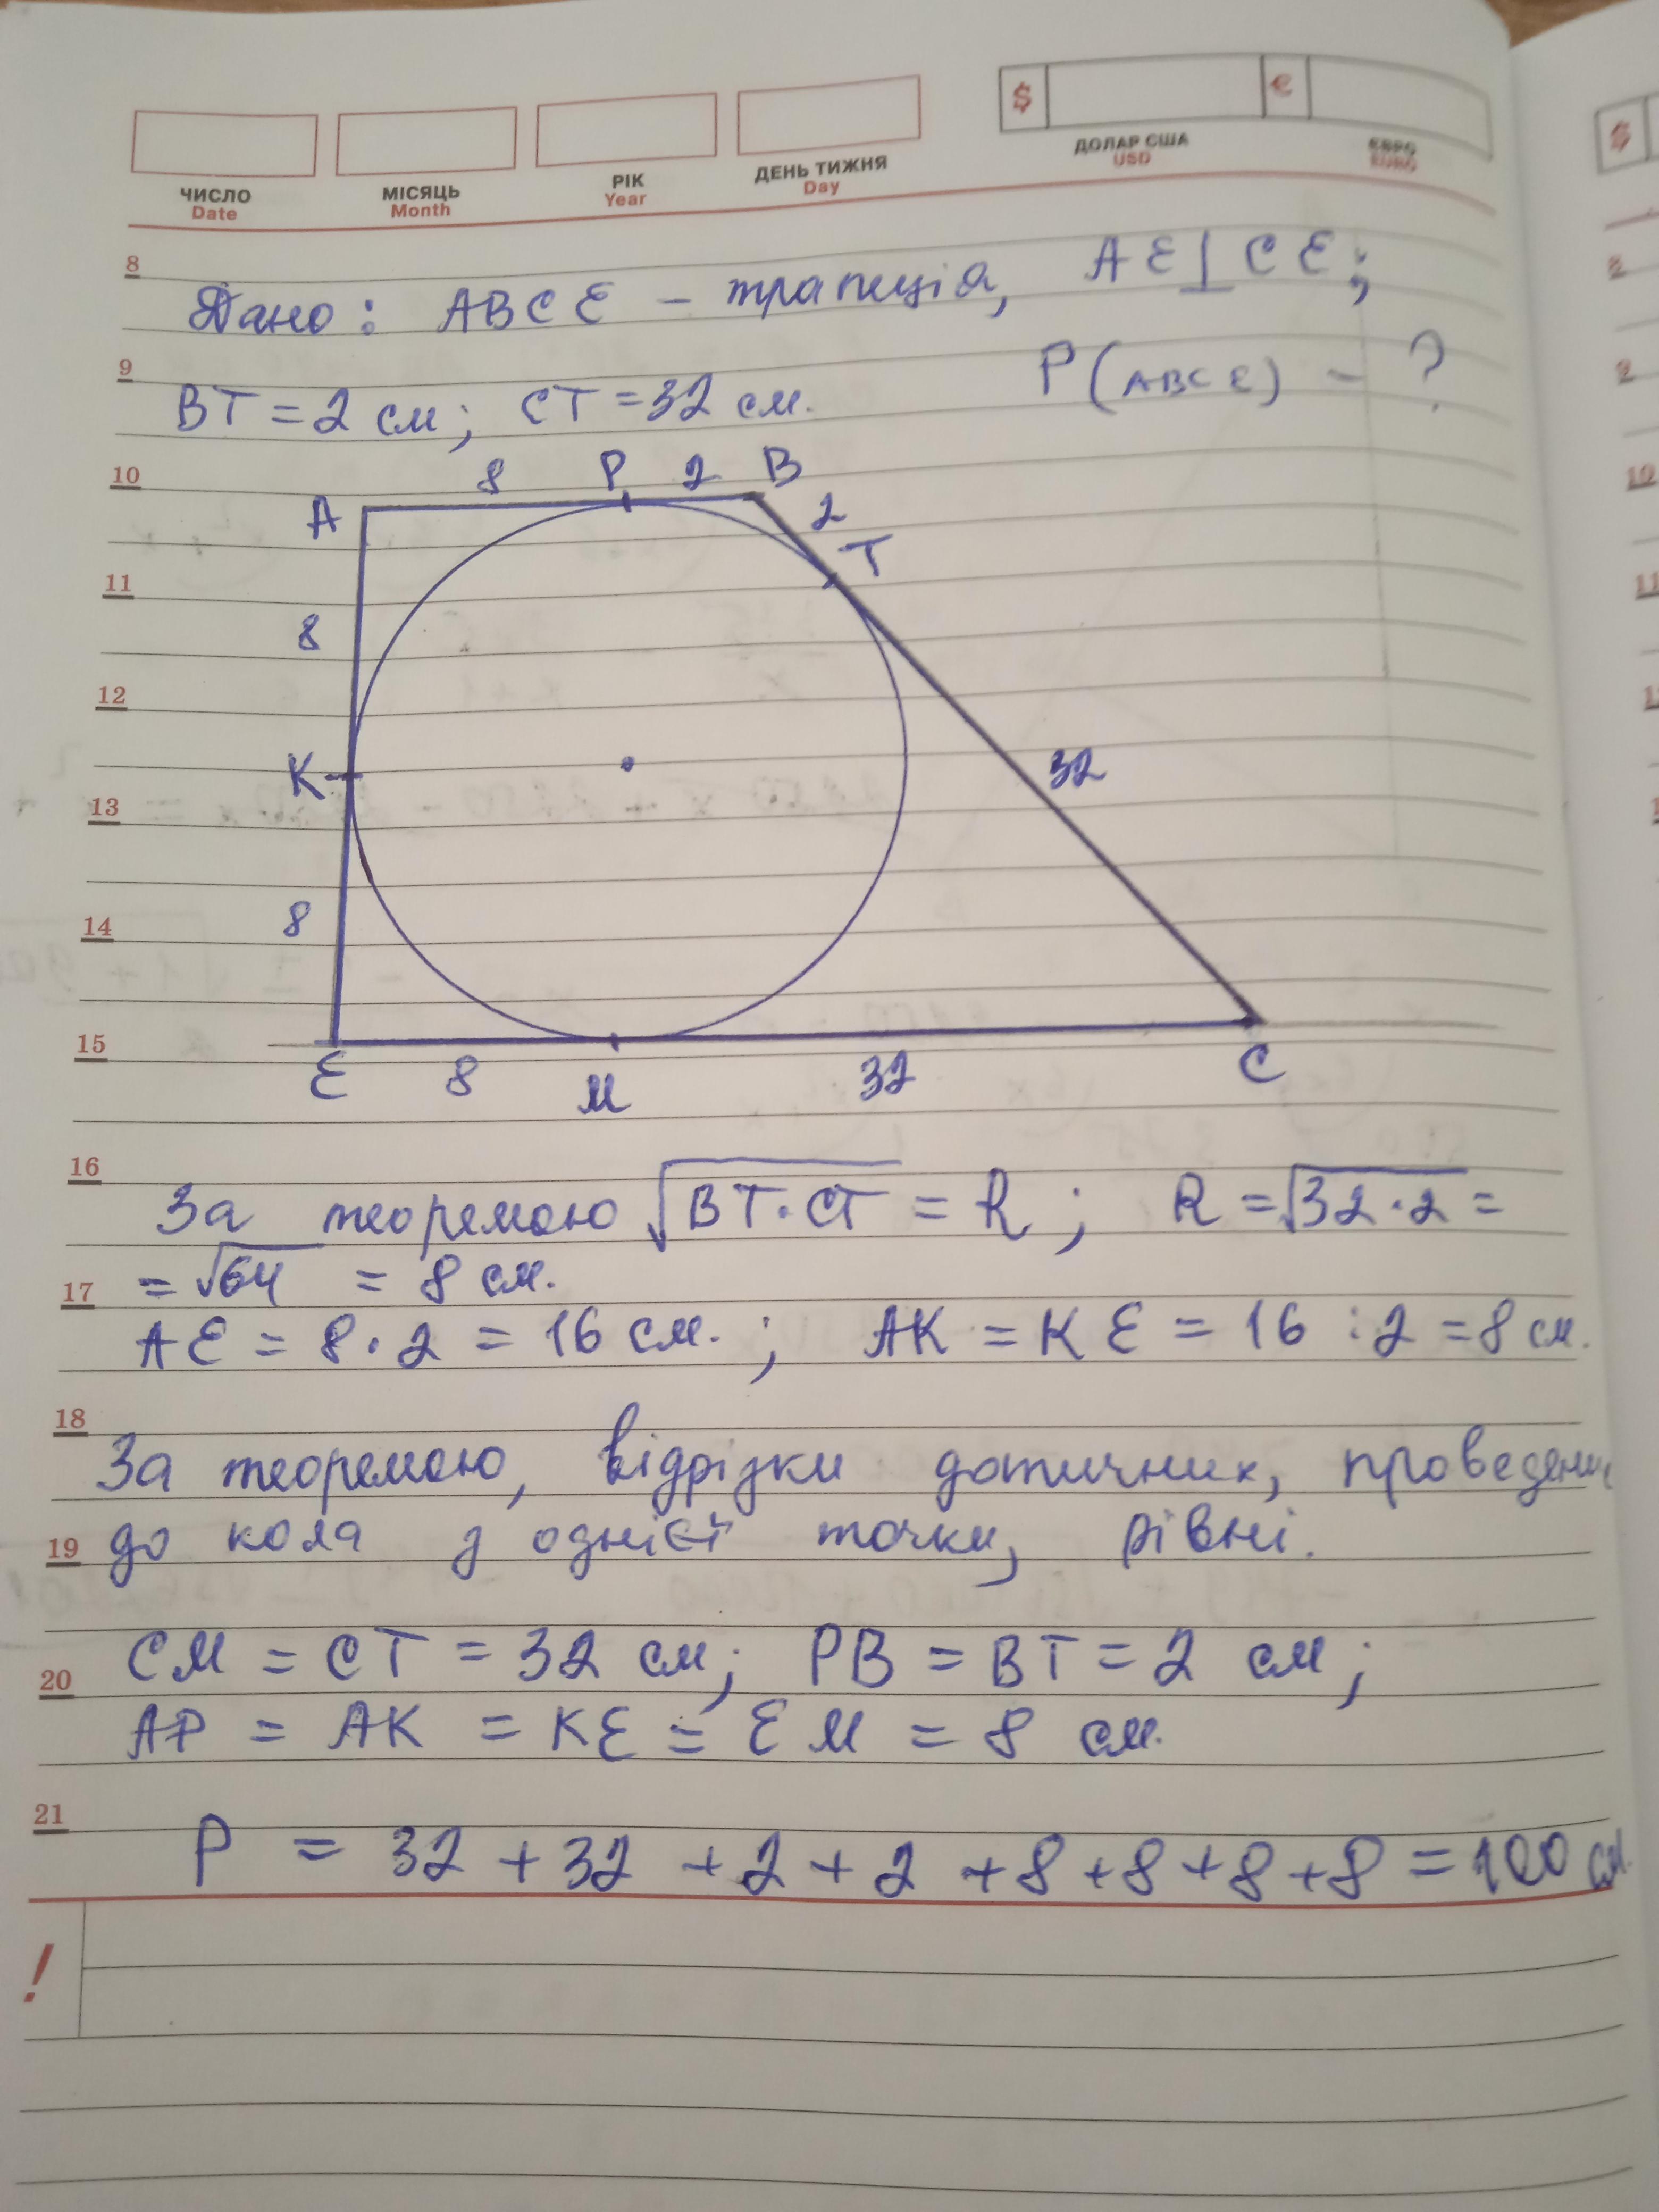 $ €
ЧИСЛО МІСЯЦЬ РІК ДЕНЬ ТИЖНЯ ДОЛАР США ЄВРО
Date Month Year Day USD EURO
8
Дано: ABCE – трапеція, AE⊥CE;
9
BT = 2 см; CT = 32 см. P(ABCE) – ?
10
8 P 2 B
A 2
T
11
8
12
K 32
13
14
8
15
E 8 M 32 C
16
За теоремою √BT·CT = R; R = √32·2 =
17 = √64 = 8 см.
AE = 8·2 = 16 см.; AK = KE = 16 : 2 = 8 см.
18
За теоремою, відрізки дотичних, проведених
19 до кола з однієї точки, рівні.
20 CM = CT = 32 см; PB = BT = 2 см;
AP = AK = KE = EM = 8 см.
21
P = 32 + 32 + 2 + 2 + 8 + 8 + 8 + 8 = 100 см.
!